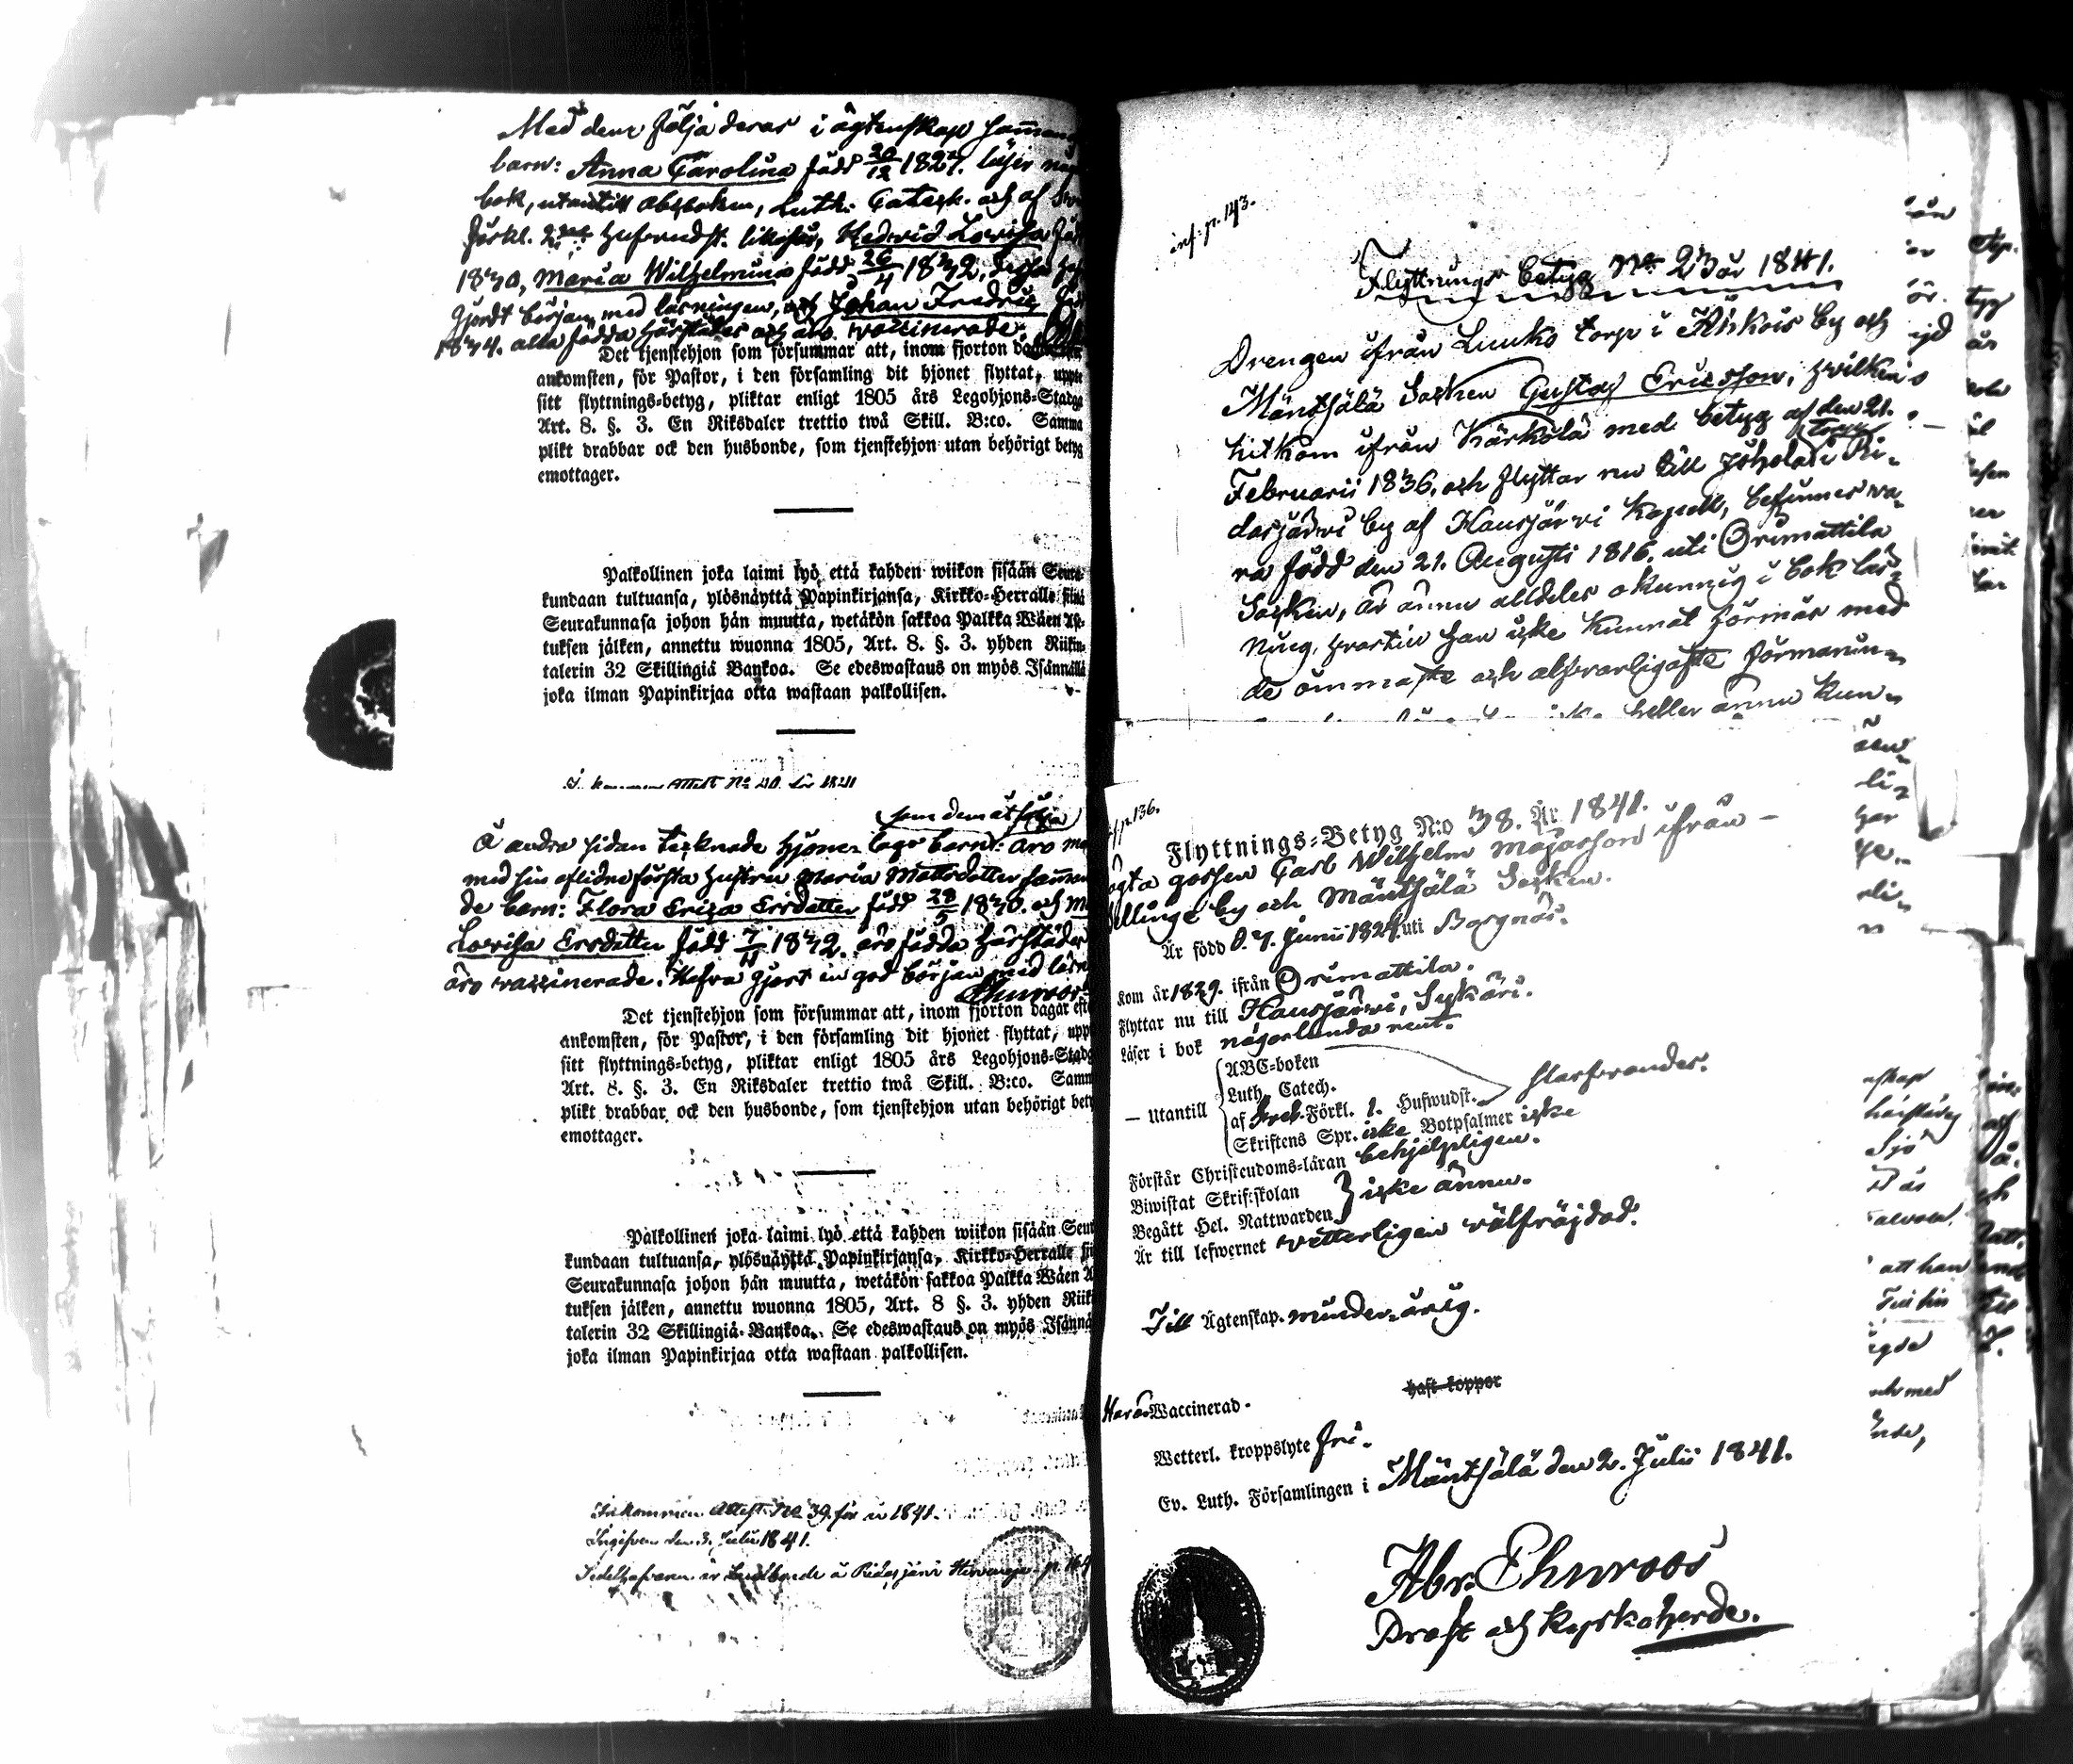 Med dem följa deras i ägtenskap
barn: Anna Carolina född 20/12 1827. läser
bok, utantill abcboken, Luth. Catech. och af
förkl. 2ne hufvudst. Hedvid Lovisa
1830, Maria Wilhelmina född 26/4 1832, dessa
gjordt början med läsningen, och Johan Fredric
1834. alla födda härstädes och äro vaccinerade.
Det tjenstehjon som försummar att, inom fjorton
ankomsten, för Pastor, i den församling dit hjonet flyttat, uppte
sitt flyttnings-betyg, pliktar enligt 1805 års Legohjons-Stadga
Art. 8. §. 3. En Riksdaler trettio twå Skill. B:co. Samma
plikt drabbar ock den husbonde, som tjenstehjon utan behörigt betyg
emottager.
Palkollinen joka laimi lyö että kahden wiikon sisään Seura-
kundaan tultuansa, ylösnäyttä Papinkirjansa, Kirkko-Herralle siinä
Seurakunnasa johon hän muutta, wetäkön sakkoa Palkka Wäen As-
tuksen jälken, annettu wuonna 1805, Art. 8. §. 3. yhden Riikin-
talerin 32 Skillingiä Bankoa. Se edeswastaus on myös Isännällä
joka ilman Papinkirjaa otta wastaan palkollisen.
Attest No 40 för 1841
som dem åtfölja
Å andra sidan tecknade hjonelags barn: äro
med sin aflidna första hustru Maria Mattsdotter
de barn: Flora Erica Ersdotter född 28/5 1830. och
Lovisa Ersdotter född 7/11 1832. äro födda härstädes
äro vaccinerade. Hafva gjort en god början med
Ehnroos.
Det tjenstehjon som försummar att, inom fjorton dagar efte
ankomsten, för Pastor, i den församling dit hjonet flyttat, upp
sitt flyttnings-betyg, pliktar enligt 1805 års Legohjons-Stadg
Art. 8. §. 3. En Riksdaler trettio twå Skill. B:co. Samm
plikt drabbar ock den husbonde, som tjenstehjon utan behörigt bet
emottager.
Palkollinen joka laimi lyö että kahden wiikon sisään Seu
kundaan tultuansa, ylösnäyttä Papinkirjansa, Kirkko-Herralle sii
Seurakunnasa johon hän muutta, wetäkön sakkoa Palkka Wäen A
tuksen jälken, annettu wuonna 1805, Art. 8 §. 3. yhden Riiki
talerin 32 Skillingiä Bankoa. Se edeswastaus on myös Isännä
joka ilman Papinkirjaa otta wastaan palkollisen.
Inkommen Attest No 39. för år 1841.
Ingifven den 3. Julii 1841.
Sedelhafvaren är Landbonde å Ridasjärvi Hirvenoja p. 164
inf. p. 143.
Flyttnings betyg No 23 år 1841.
Drengen ifrån Liuko torp i Kähkois by och
Mäntsälä Socken Gustaf Ericsson, hvilken
hitkom ifrån Kärkölä med betyg af den 21.
Februarii 1836, och flyttar nu till Jokela torp i Ri-
dasjärvi by af Hausjärvi Kapell, befinnes va-
ra född den 21. Augusti 1816. uti Orimattila
Socken, är ännu alldeles okunnig i bok läs-
ning, hvartill han icke kunnat förmås med
de ömmaste och alfvarligaste förmanin-
heller ännu kun-
inf. p. 136.
Flyttnings-Betyg N:o 38. År 1841.
gossen Carl Wilhelm Majasson ifrån
by och Mäntsälä Socken.
Är född d. 7. Junii 1824. uti Borgnäs.
Kom år 1829. ifrån Orimattila.
Flyttar nu till Hausjärvi, Sykäri.
Läser i bok någorlunda rent.
— Utantill
ABC-boken
Luth. Catech.
af Förkl. 1. Hufwudst. starfvandes.
Skriftens Spr. icke Botpsalmer icke
Förstår Christendoms-läran behjelpligen.
Biwistat Skriftskolan
Begått Hel. Nattwarden } icke ännu.
Är till lefwernet vetterligen välfräjdad.
Till Ägtenskap minder-årig.
haft koppor
Har är Waccinerad.
Wetterl. kroppslyte fri.
Ev. Luth. Församlingen i Mäntsälä den 2. Julii 1841.
Abr. Ehnroos
Prost och Kyrkoherde.